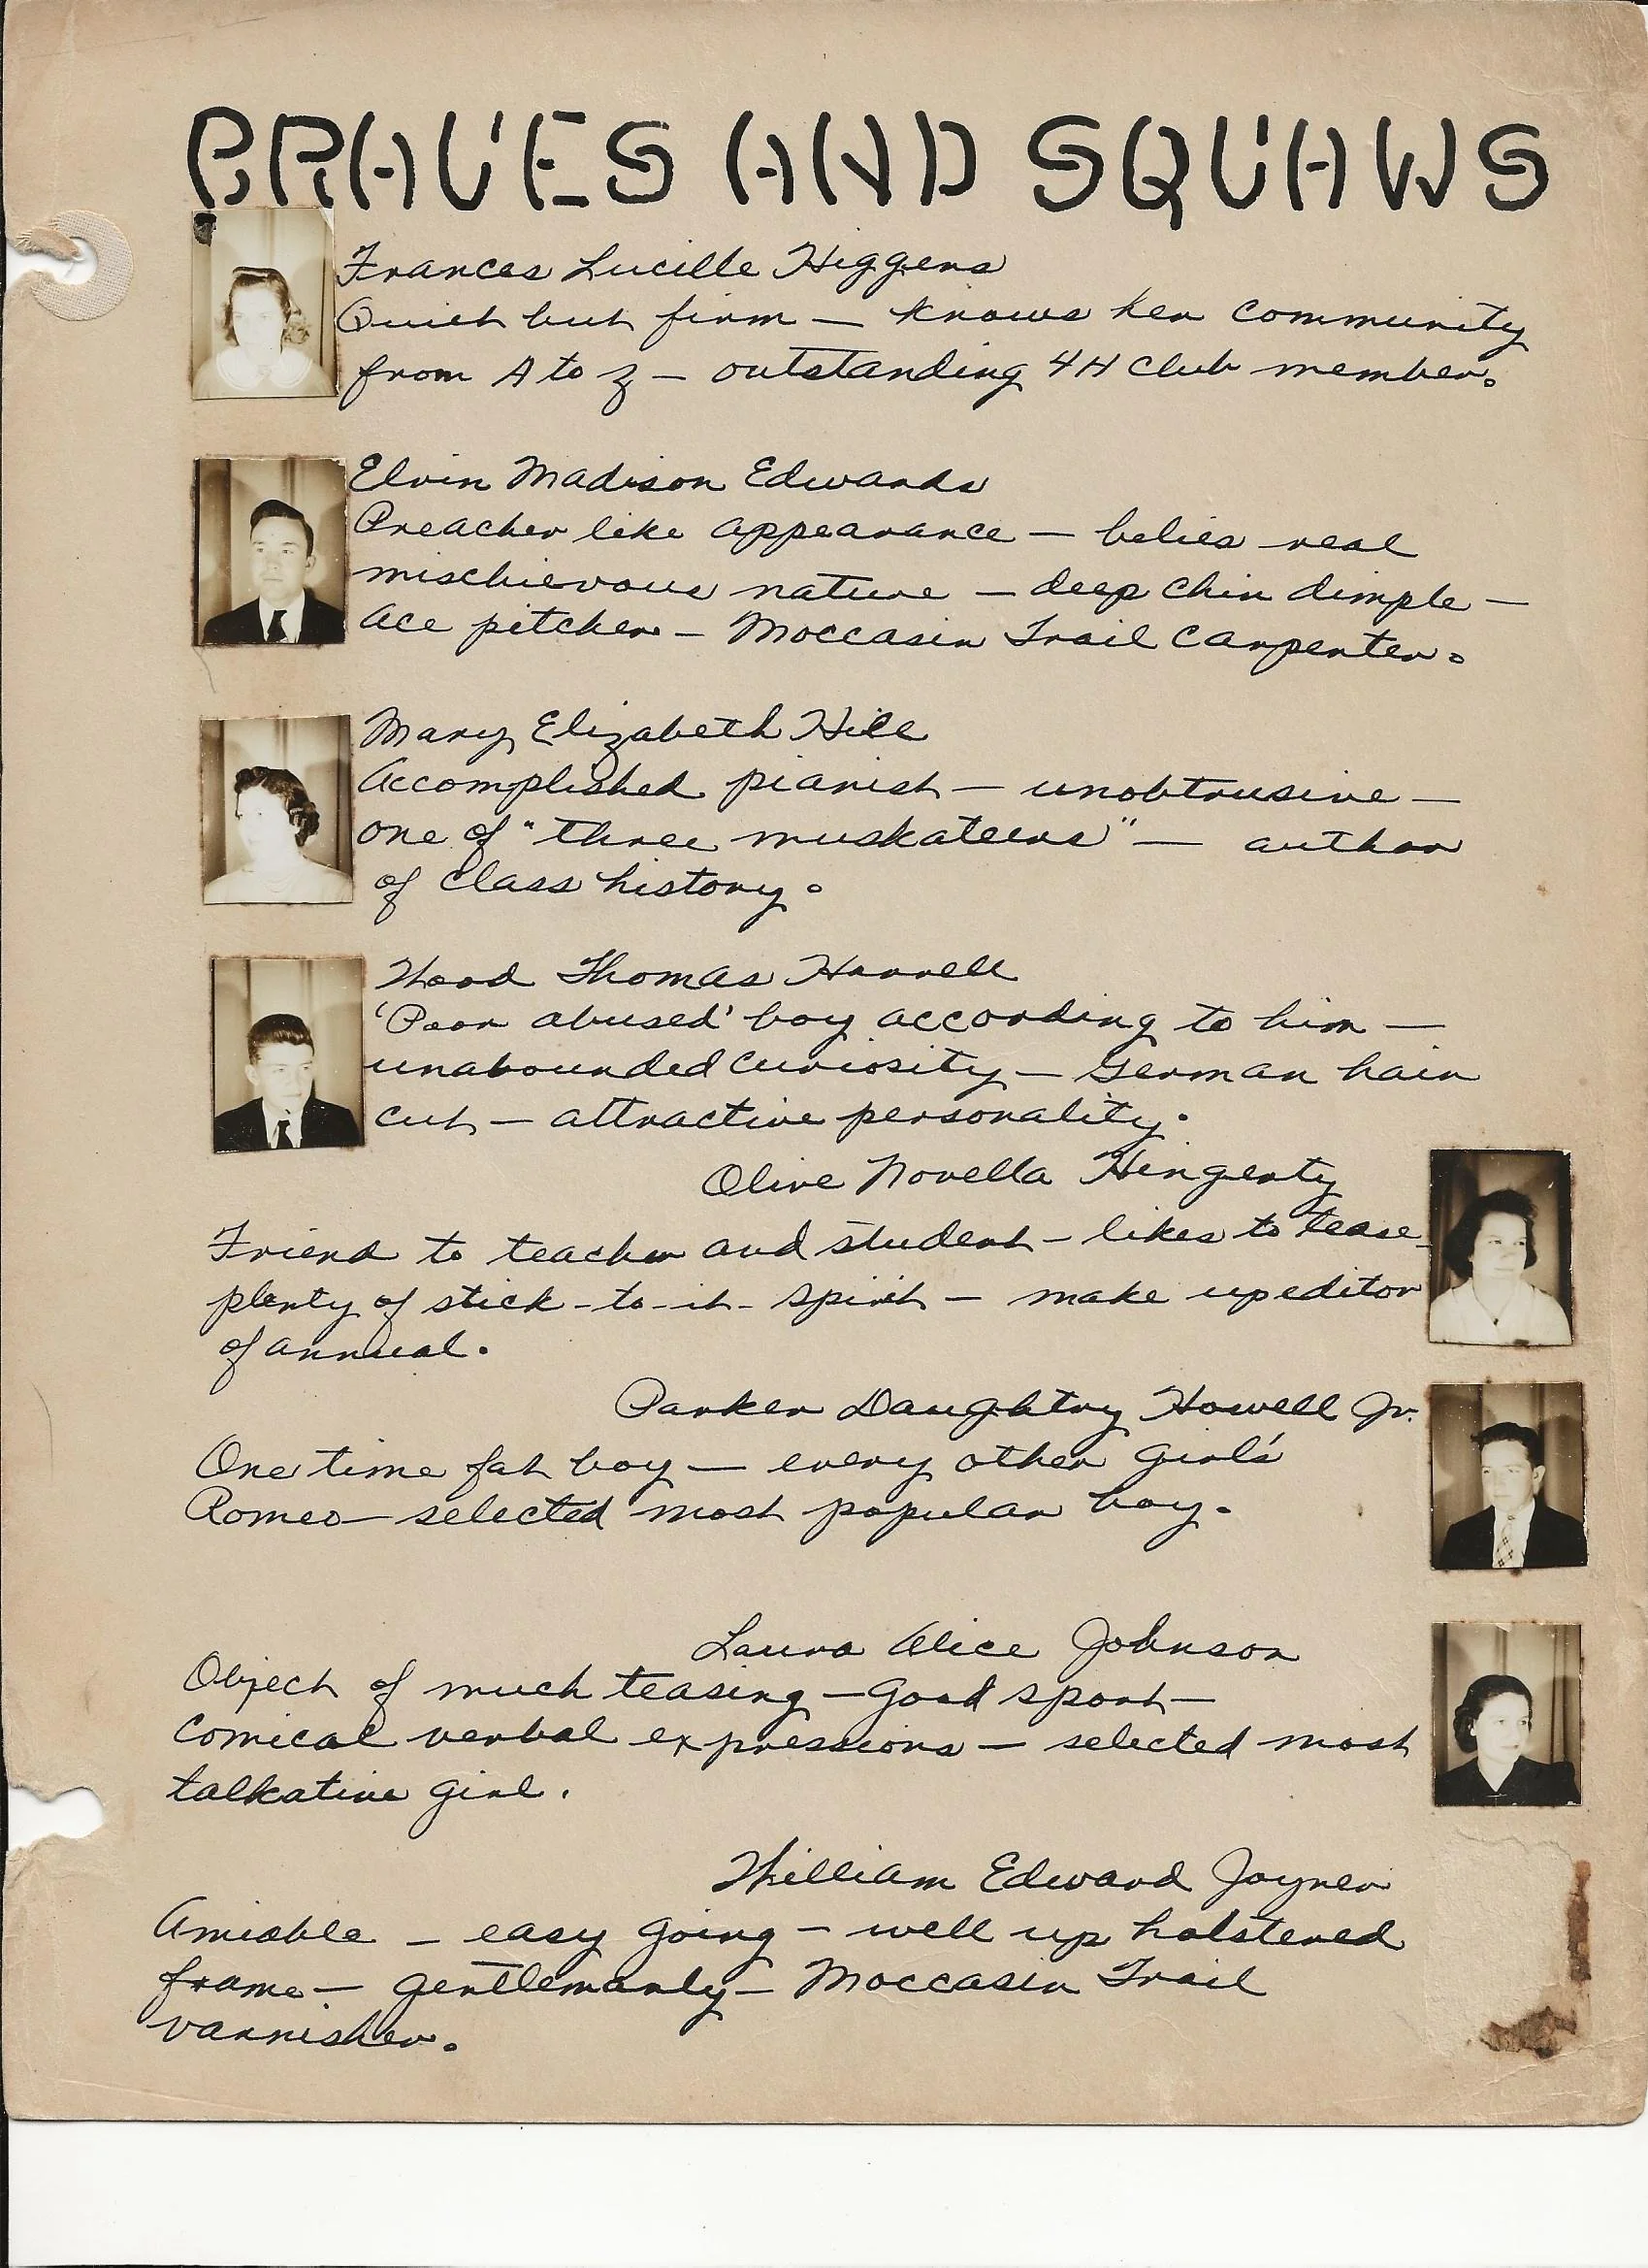 BRAVES AND SQUAWS
Frances Lucille Higgens
Quiet but firm — knows her community
from A to Z — outstanding 4H Club member.
Elvin Madison Edwards
Preacher like appearance — belies real
mischievous nature — deep chin dimple —
ace pitcher — Moccasin Trail Carpenter.
Mary Elizabeth Hill
Accomplished pianist — unobtrusive —
one of "three muskateers" — author
of class history.
Wood Thomas Harrell
'Poor abused' boy according to him —
unabounded curiosity — German hair
cut — attractive personality.
Olive Novella Hingerty
Friend to teacher and student — likes to tease-
plenty of stick-to-it-spirit — make up editor
of annual.
Parker Daughtry Howell Jr.
One time fat boy — every other girl's
Romeo — selected most popular boy.
Laura Alice Johnson
Object of much teasing — Good sport —
comical verbal expressions — selected most
talkative girl.
William Edward Joyner
Amiable — easy going — well up holstered
frame — gentlemanly — Moccasin Trail
varnisher.